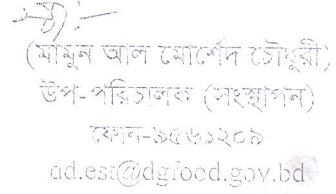 (মামুন আল মোর্শেদ চৌধুরী)
উপ-পরিচালক (সংস্থাপন)
ফোন-৯৫৬১২০৯
ad.est@dgfood.gov.bd